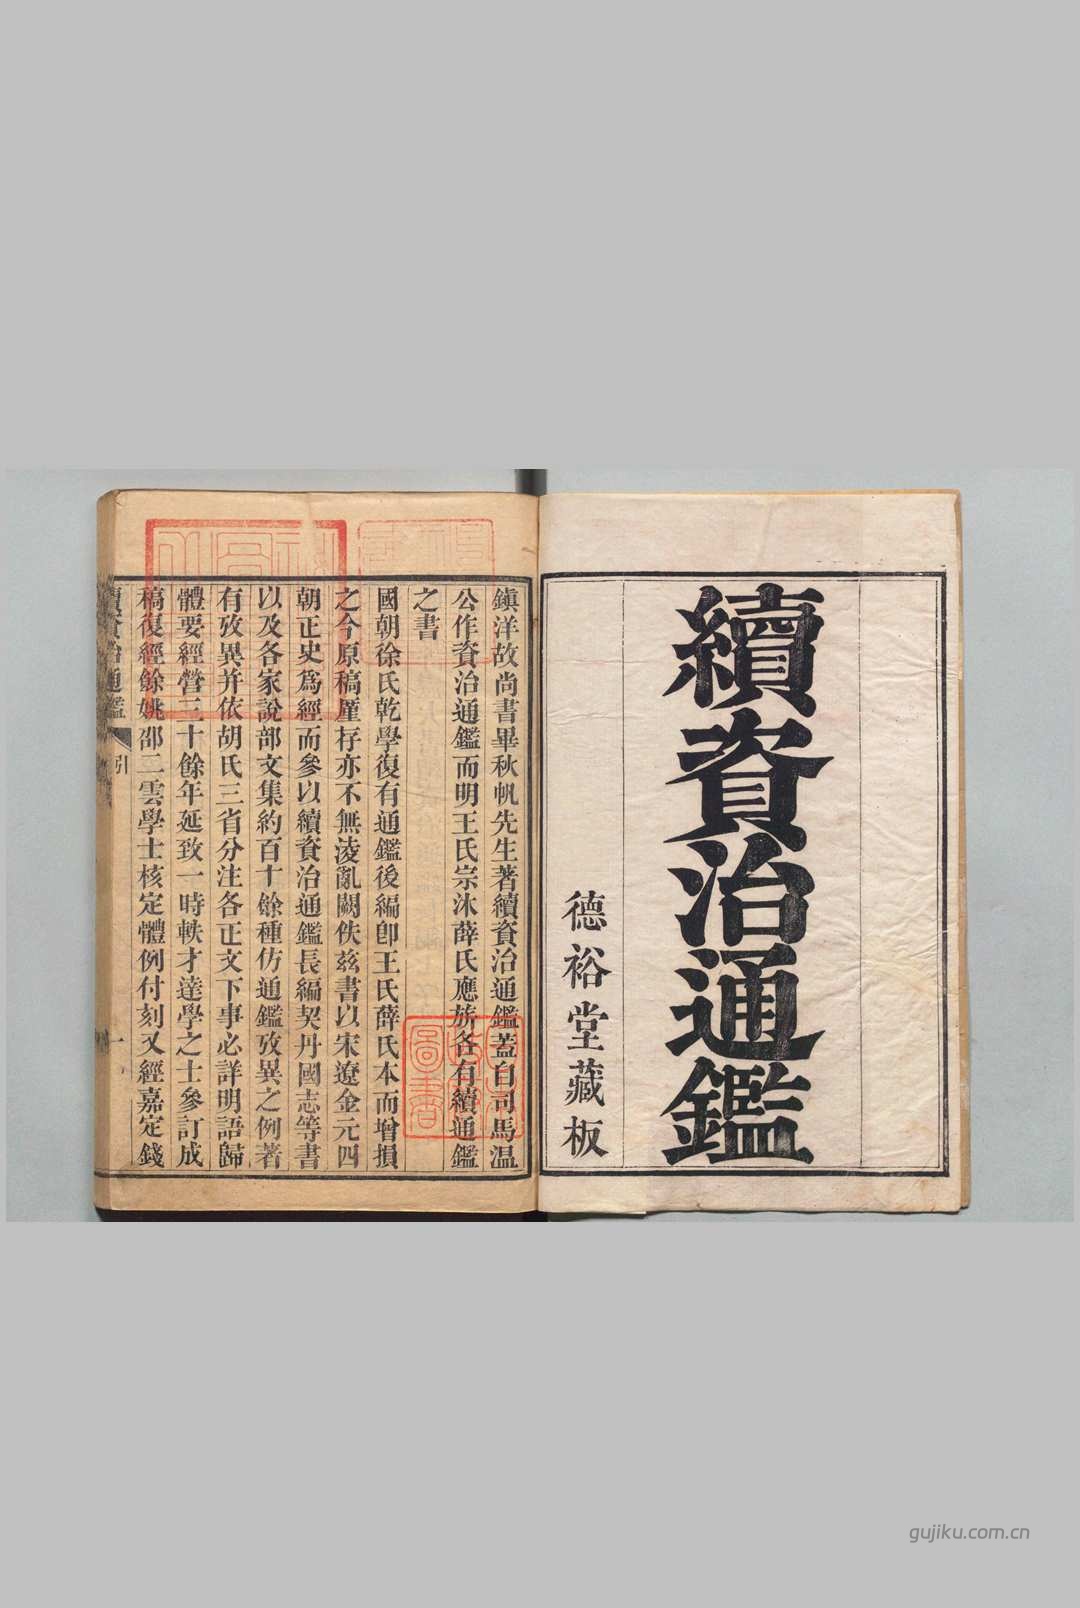 續資治通鑑
德裕堂藏板
鎮洋故尚書畢秋帆先生著續資治通鑑蓋自司馬温
公作資治通鑑而明王氏宗沐薛氏應旂各有續通鑑
之書
國朝徐氏乾學復有通鑑後編卽王氏薛氏本而增損
之今原稿厪存亦不無淩亂闕佚兹書以宋遼金元四
朝正史爲經而參以續資治通鑑長編契丹國志等書
以及各家說部文集約百十餘種仿通鑑攷異之例著
有攷異并依胡氏三省分注各正文下事必詳明語歸
體要經營三十餘年延致一時軼才達學之士參訂成
稿復經餘姚邵二雲學士核定體例付刻又經嘉定錢
續資治通鑑
引
一
圖書
gujiku.com.cn